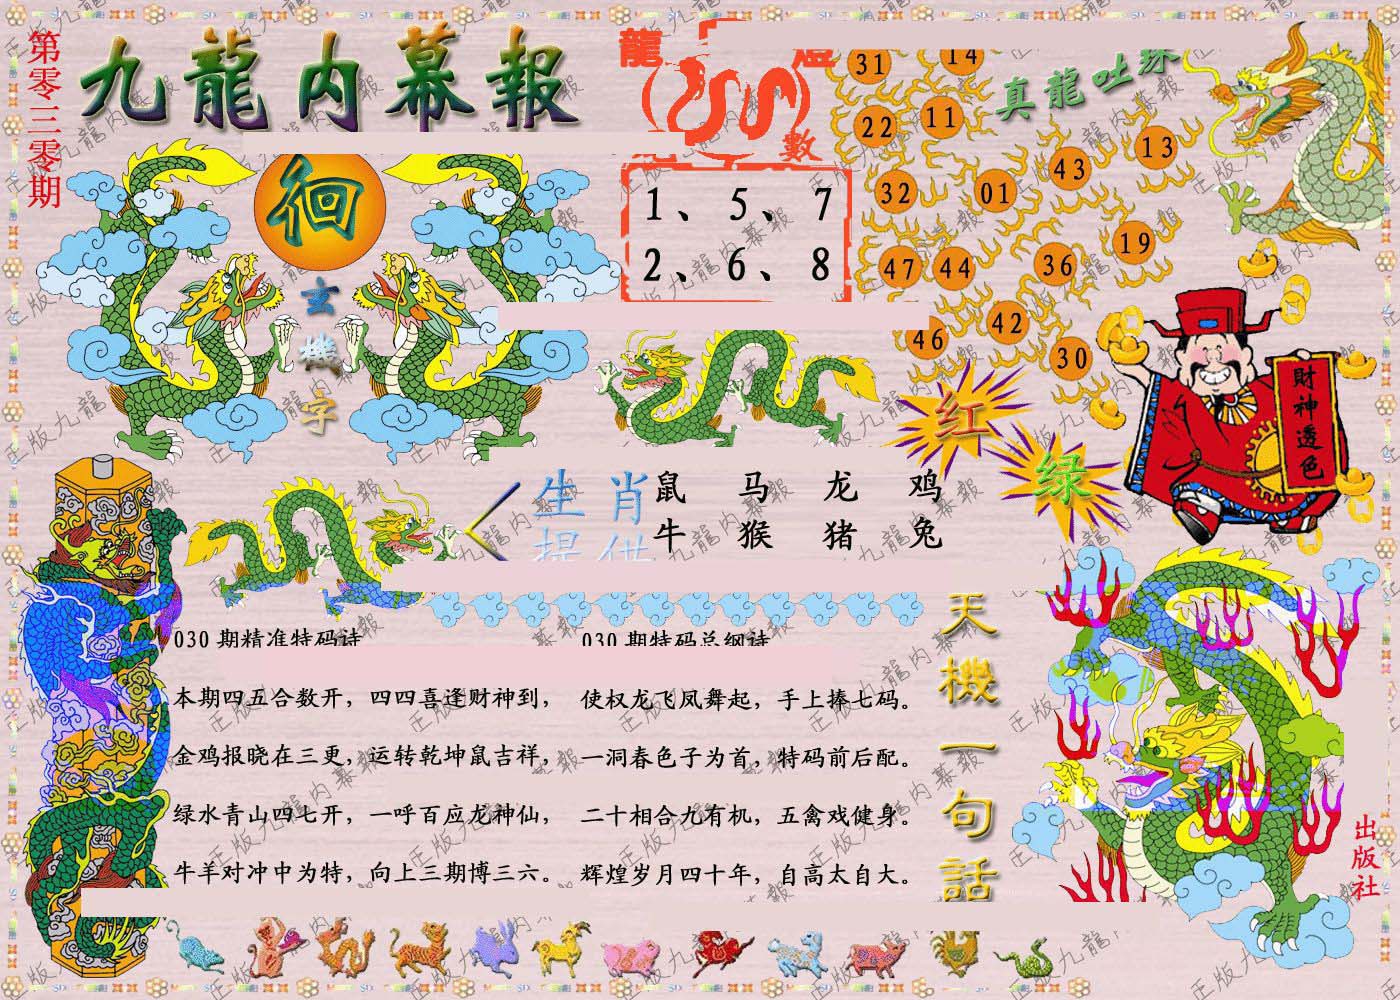 第零三零期
九龍内幕報
龍
數
1、5、7
2、6、8
31
14
22
11
43
13
32
01
47
44
36
19
46
42
30
真龍吐珠
徊
玄機字
財神透色
红
绿
生肖
提供
鼠 马 龙 鸡
牛 猴 猪 兔
030期精准特码诗
本期四五合数开，四四喜逢财神到，
金鸡报晓在三更，运转乾坤鼠吉祥，
绿水青山四七开，一呼百应龙神仙，
牛羊对冲中为特，向上三期博三六。
030期特码总纲诗
使权龙飞凤舞起，手上捧七码。
一洞春色子为首，特码前后配。
二十相合九有机，五禽戏健身。
辉煌岁月四十年，自高太自大。
天機一句話
出版社
正版九龍内幕報